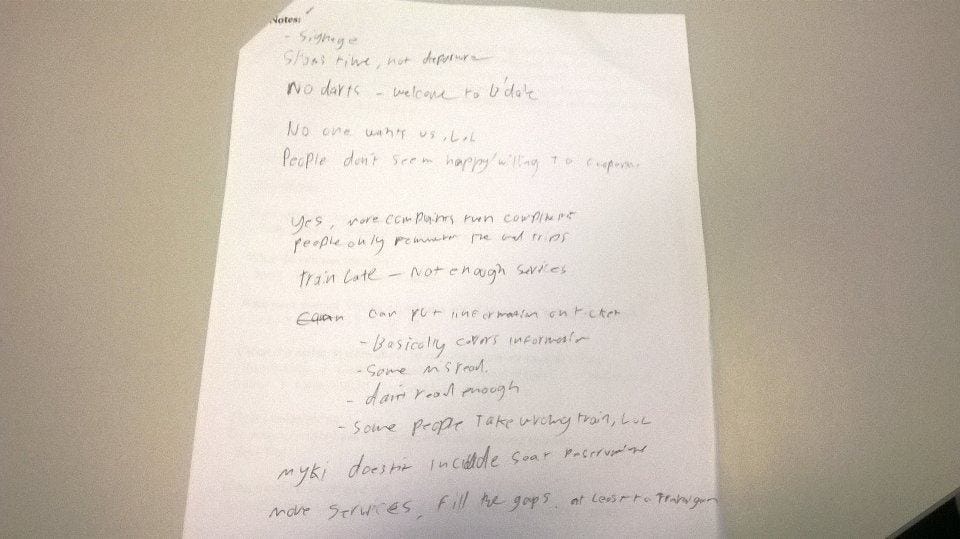 Notes:
- Signage
time, not departure
No darts - welcome to V'date
No one wants us, LOL
People don't seem happy/willing to
Yes, more complaints than compliments
people only remember the bad trips
train late - Not enough services
can put information on ticket
- Basically covers information
- Some misread.
- don't read enough
- Some people take wrong train, LOL
myki doesn't include seat reservations
more services, fill the gaps, at least to Traralgon